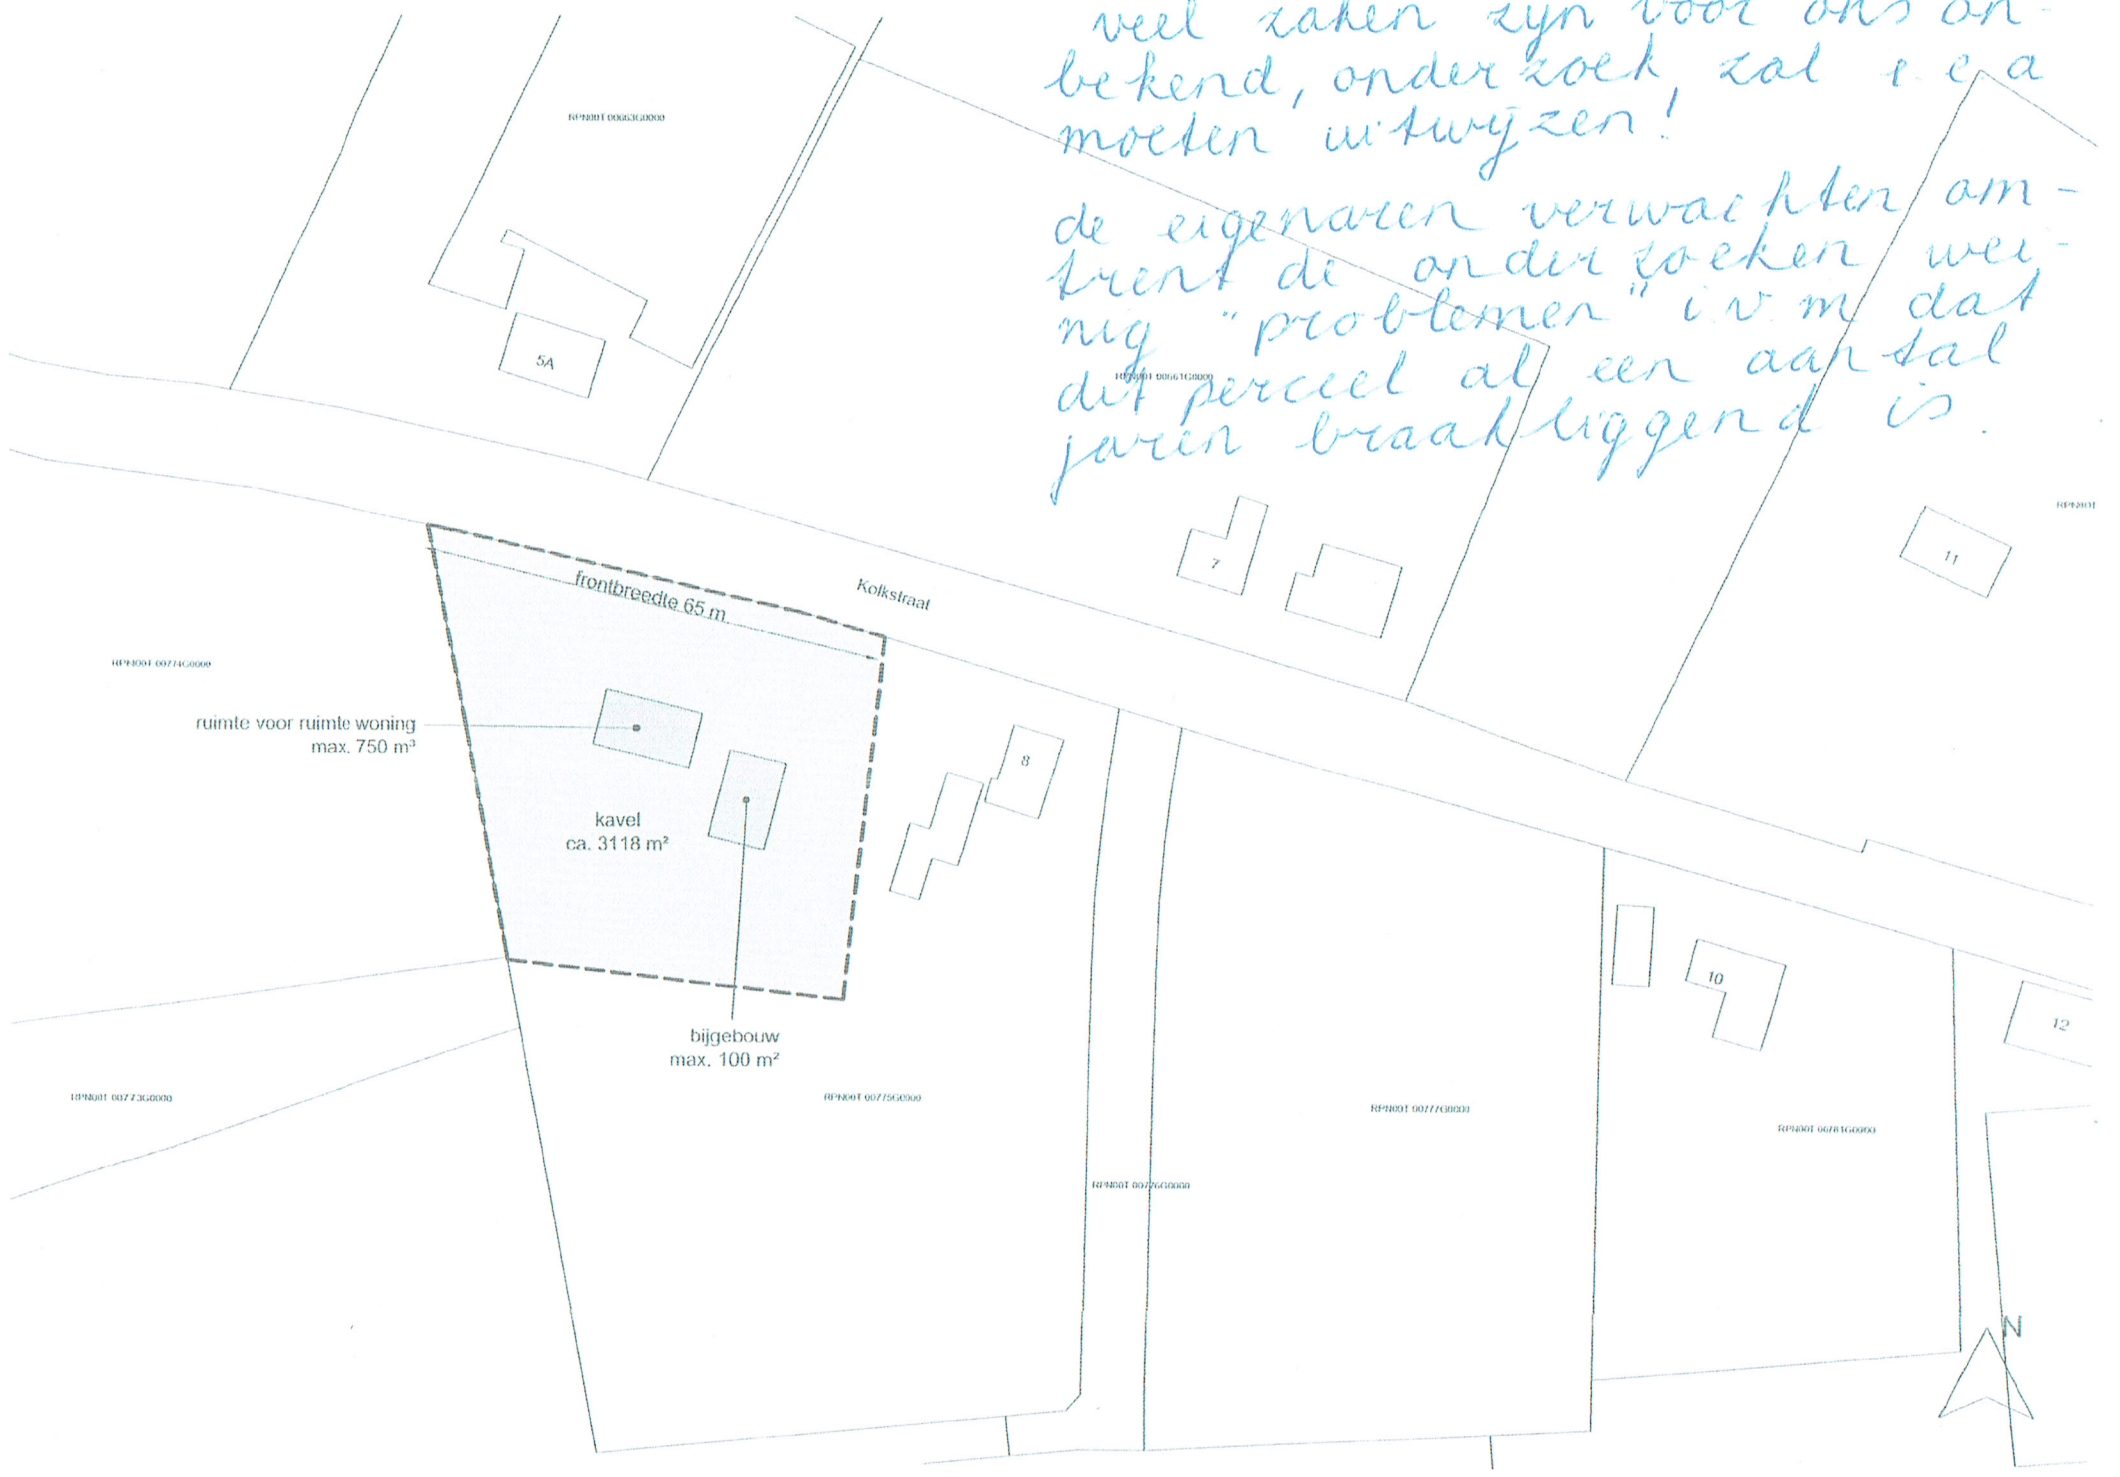 veel zaken zijn voor ons on-
bekend, onderzoek, zal e.e.a
moeten uitwijzen!
de eigenaren verwachten om-
trent de onderzoeken wei-
nig "problemen" i.v.m dat
dit perceel al een aantal
jaren braakliggend is.
RPN00T 00663G0000
5A
RPN00T 00661G0000
RPN00T
7
11
frontbreedte 65 m
Kolkstraat
RPN00T 00774G0000
ruimte voor ruimte woning
max. 750 m³
8
kavel
ca. 3118 m²
10
12
bijgebouw
max. 100 m²
RPN00T 00773G0000
RPN00T 00775G0000
RPN00T 00777G0000
RPN00T 00781G0000
RPN00T 00776G0000
N